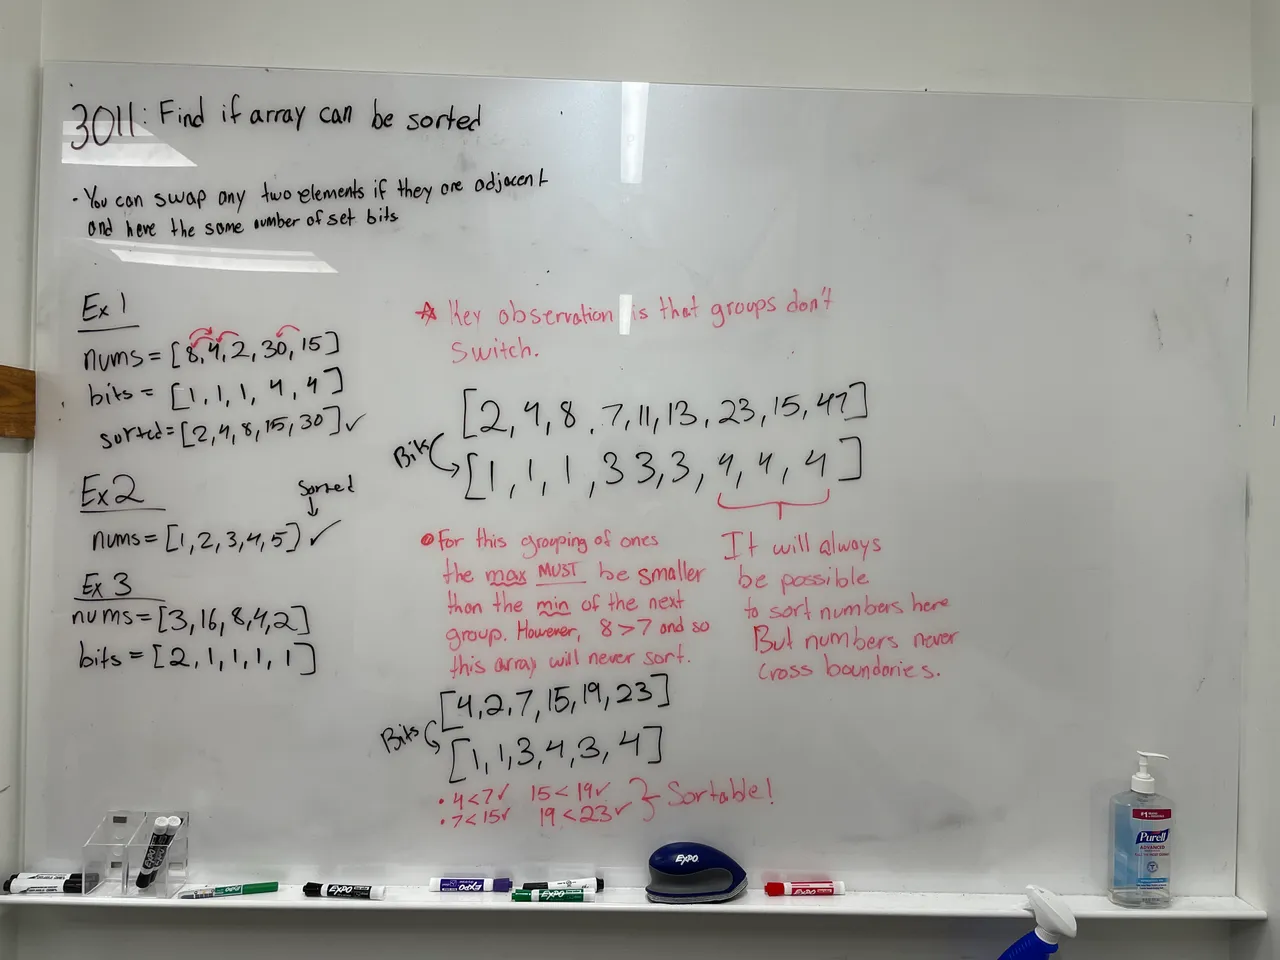 3011: Find if array can be sorted
· You can swap any two elements if they are adjacent
and have the same number of set bits
Ex 1
nums = [8,4,2,30,15]
bits = [1,1,1,4,4]
sorted = [2,4,8,15,30] ✓
Ex2
Sorted
↓
nums = [1,2,3,4,5] ✓
Ex 3
nums = [3,16,8,4,2]
bits = [2,1,1,1,1]
☆ Key observation is that groups don't
switch.
[2,4,8,7,11,13,23,15,47]
Bits
[1,1,1,3 3,3,4,4,4]
• For this grouping of ones
the max MUST be smaller
than the min of the next
group. However, 8>7 and so
this array will never sort.
It will always
be possible
to sort numbers here
But numbers never
cross boundaries.
[4,2,7,15,19,23]
Bits
[1,1,3,4,3,4]
• 4<7✓ 15<19✓
• 7<15✓ 19<23✓
} Sortable!
EXPO
EXPO
EXPO
EXPO
EXPO
EXPO
#1
Purell
ADVANCED